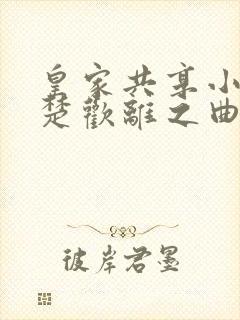 皇家共享小
楚歡離之曲
彼岸君墨